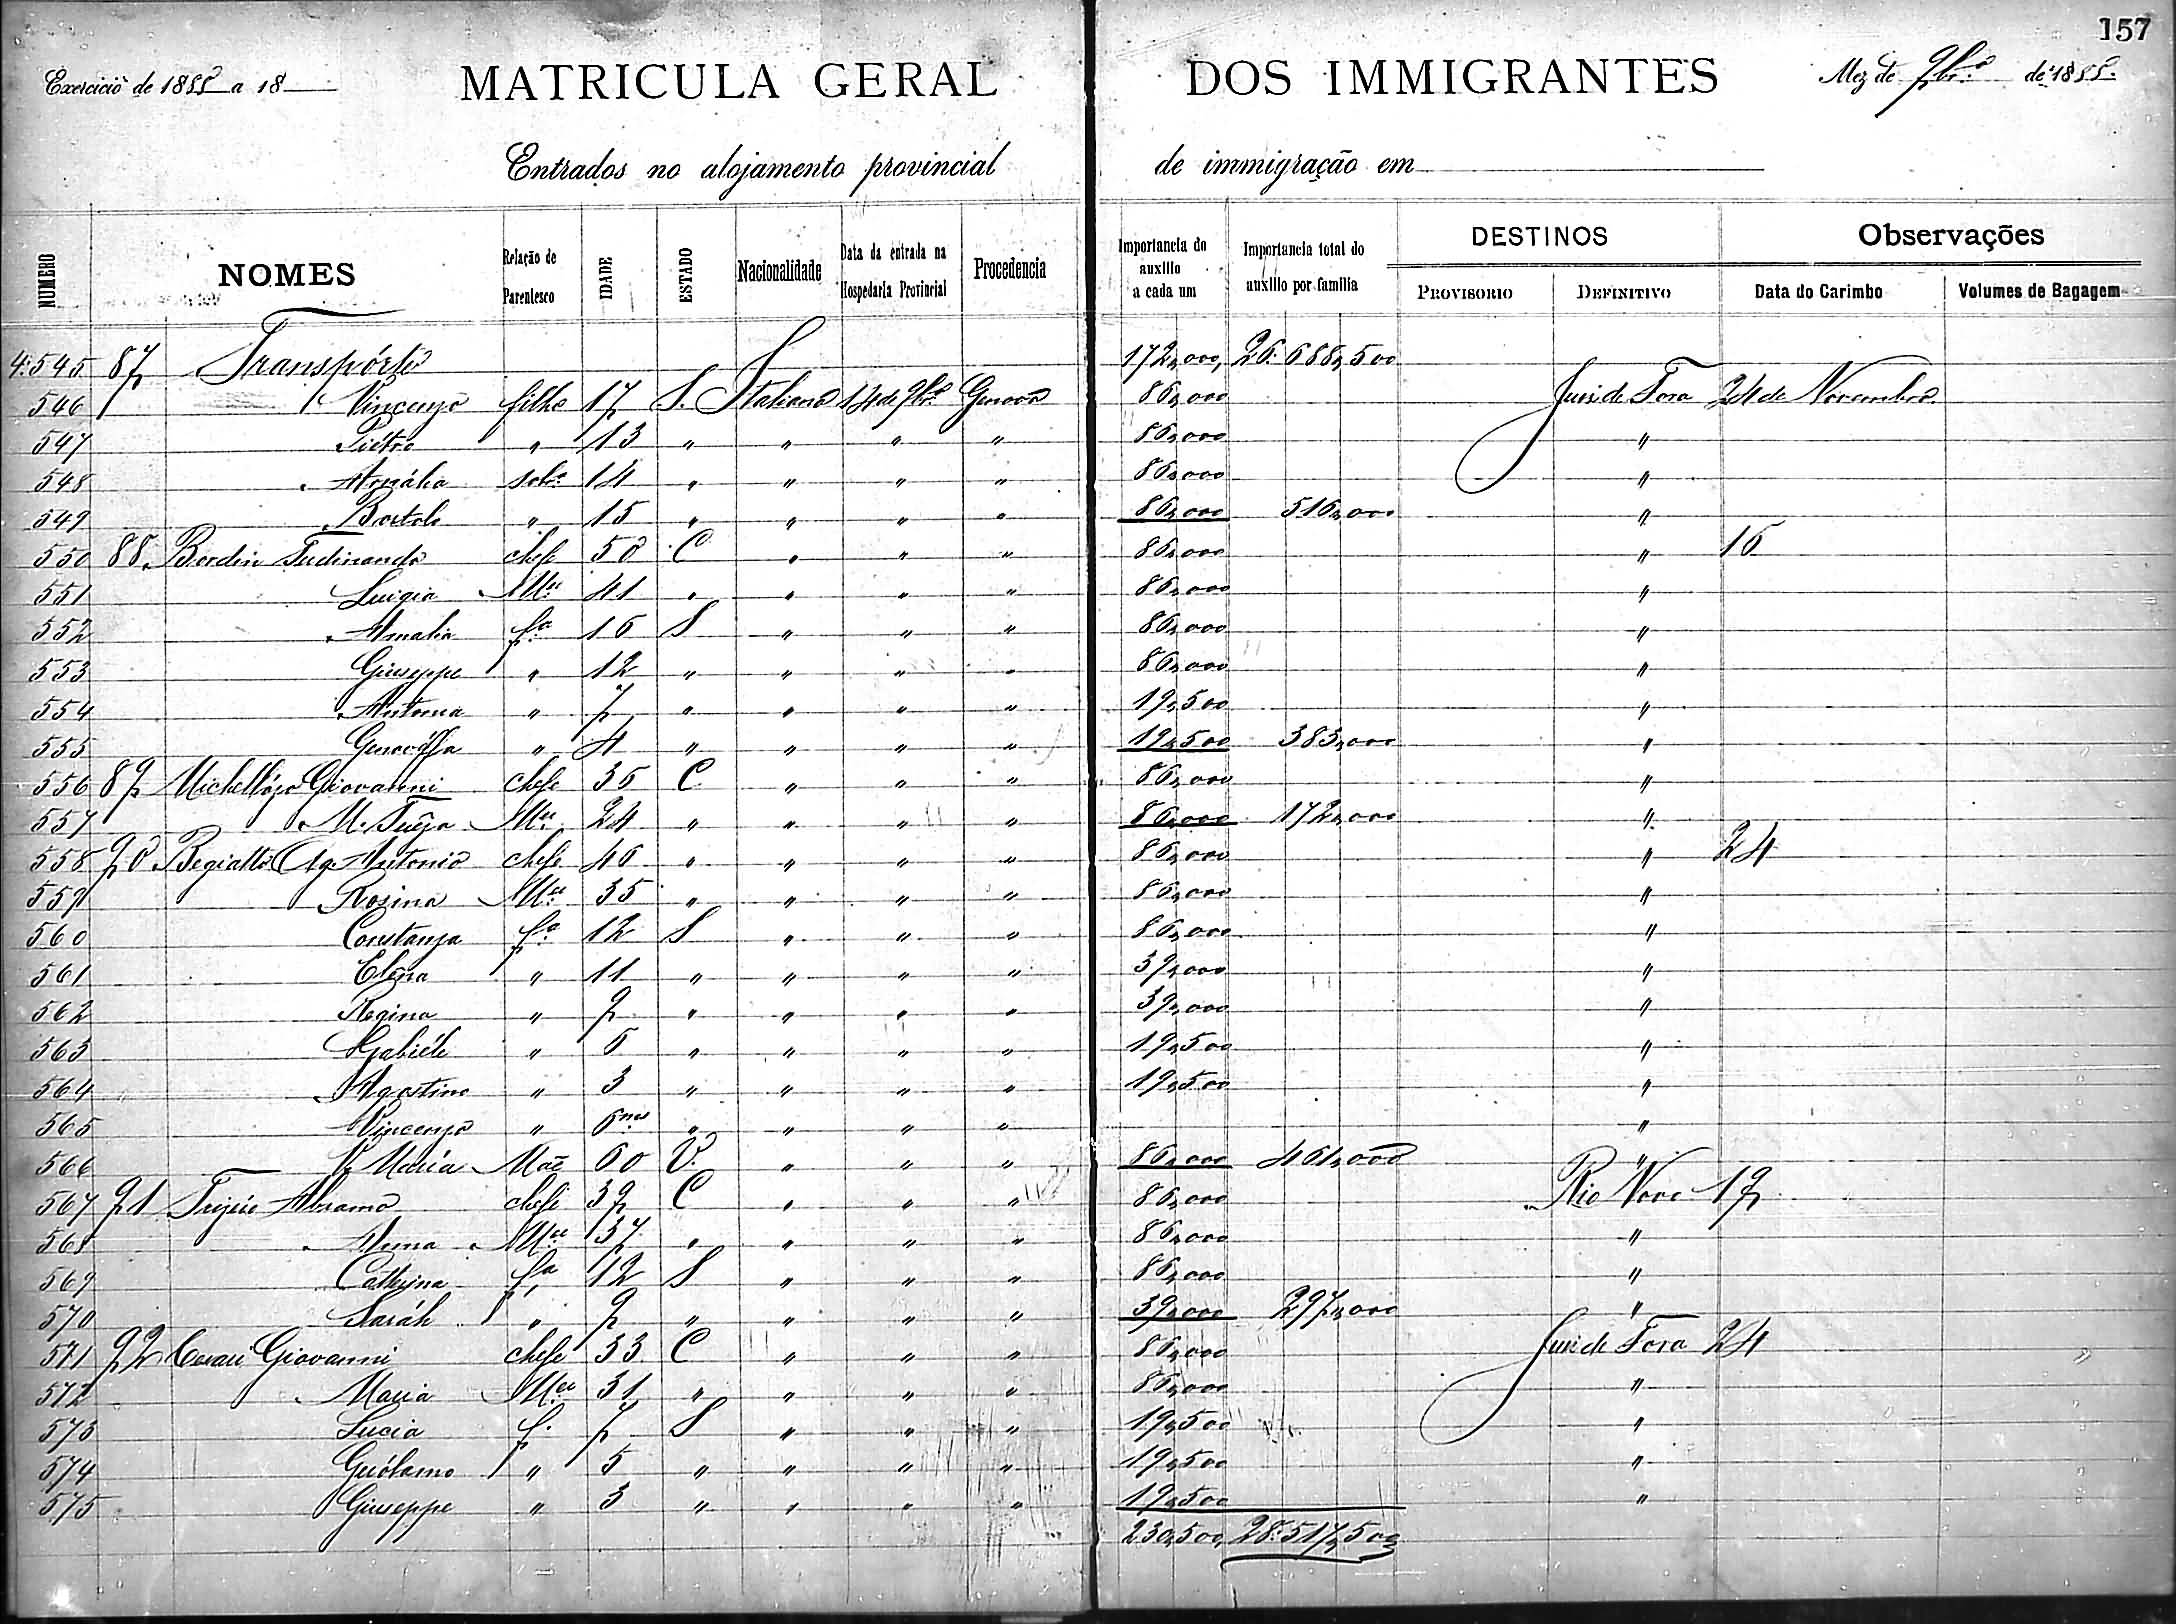 157
Exercicio de 1888 a 18
MATRICULA GERAL DOS IMMIGRANTES
Mez de 9bro de 1888.
Entrados no alojamento provincial de immigração em
NUMERO NOMES Relação de Parentesco IDADE ESTADO Nacionalidade Data da entrada na Hospedaria Provincial Procedencia Importancia do auxilio a cada um Importancia total do auxilio por familia DESTINOS PROVISORIO DEFINITIVO Observações Data do Carimbo Volumes de Bagagem
4:545 87 Transpórte 172,000, 26:688,500
546 Vincenzo filho 17 S. Italiana 14 de 9bro Genova 86,000 Juiz de Fora 24 de Novembro
547 Pietro " 13 " " " " 86,000 "
548 Amália sobr.o 14 " " " " 86,000 "
549 Bortolo " 15 " " " " 86,000 516,000 "
550 88 Bordin Ferdinando chefe 50 C " " " 86,000 " 16
551 Luigia Mer 41 " " " " 86,000 "
552 Amalia fa 16 S " " " 86,000 "
553 Giuseppe " 12 " " " " 86,000 "
554 Antonia " 7 " " " " 19,500 "
555 Genovéffa " 4 " " " " 19,500 383,000 "
556 89 Giovanni chefe 36 C " " " 86,000 "
557 M. Mer 24 " " " " 86,000 172,000 "
558 90 Antonio chefe 46 " " " " 86,000 " 24
559 Rosina Mer 35 " " " " 86,000 "
560 Constanza fa 12 S " " " 86,000 "
561 Elena " 11 " " " " 39,000 "
562 Regina " 9 " " " " 39,000 "
563 Gabiéle " 6 " " " " 19,500 "
564 Agostino " 3 " " " " 19,500 "
565 Vincenzo " 6 mes " " " " "
566 Va Maria Mãe 60 V. " " " 86,000 461,000 "
567 91 Abramo chefe 39 C " " " 86,000 Rio Novo 19
568 Anna Mer 37 " " " " 86,000 "
569 Catterina fa 12 S " " " 86,000 "
570 Saráh " 9 " " " " 39,000 297,000 "
571 92 Cesari Giovanni chefe 33 C " " " 86,000 Juiz de Fora 24
572 Maria Mer 31 " " " " 86,000 "
573 Lucia f. 7 S " " " 19,500 "
574 Gerólamo " 5 " " " " 19,500 "
575 Giuseppe " 3 " " " " 19,500 "
230,500, 28:517,500